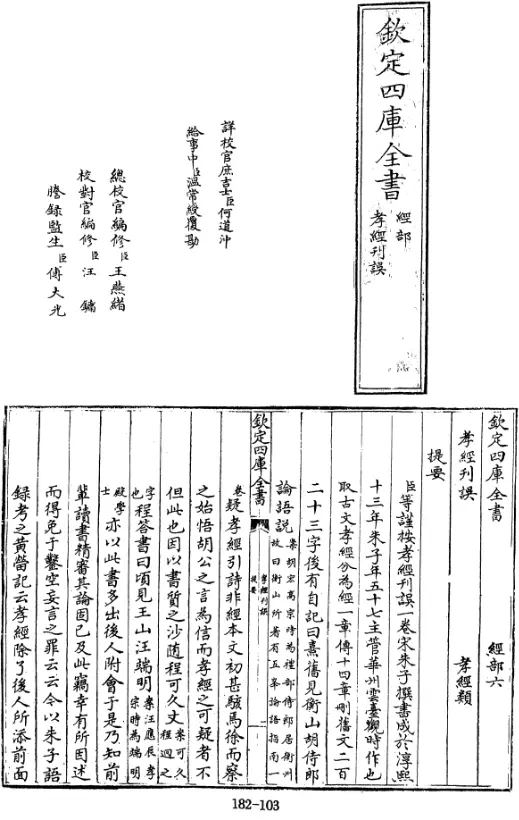 欽定四庫全書
經部
孝經刊誤
詳校官庶吉士臣何道沖
給事中臣溫常綬覆勘
總校官編修臣王燕緒
校對官編修臣汪鏞
謄錄監生臣傅大光
欽定四庫全書
經部六
孝經刊誤
孝經類
提要
臣等謹按孝經刊誤一卷宋朱子撰書成於淳熙
十三年朱子年五十七主管華州雲臺觀時作也
取古文孝經分為經一章傳十四章刪舊文二百
二十三字後有自記曰熹舊見衡山胡侍郎
論語說
案胡宏高宗時為禮部侍郎居衡州
故曰衡山所著有五峯論語指南一
欽定四庫全書
孝經刊誤
提要
一
卷
疑孝經引詩非經本文初甚駭焉徐而察
之始悟胡公之言為信而孝經之可疑者不
但此也因以書質之沙隨程可久丈
案可久
程迥之
字
也
程答書曰頃見玉山汪端明
案汪應辰孝
宗時為端明
殿學
士
亦以此書多出後人附會于是乃知前
輩讀書精審其論固已及此竊幸有所因述
而得免于鑿空妄言之罪云云今以朱子語
録考之黃㽦記云孝經除了後人所添前面
182-103